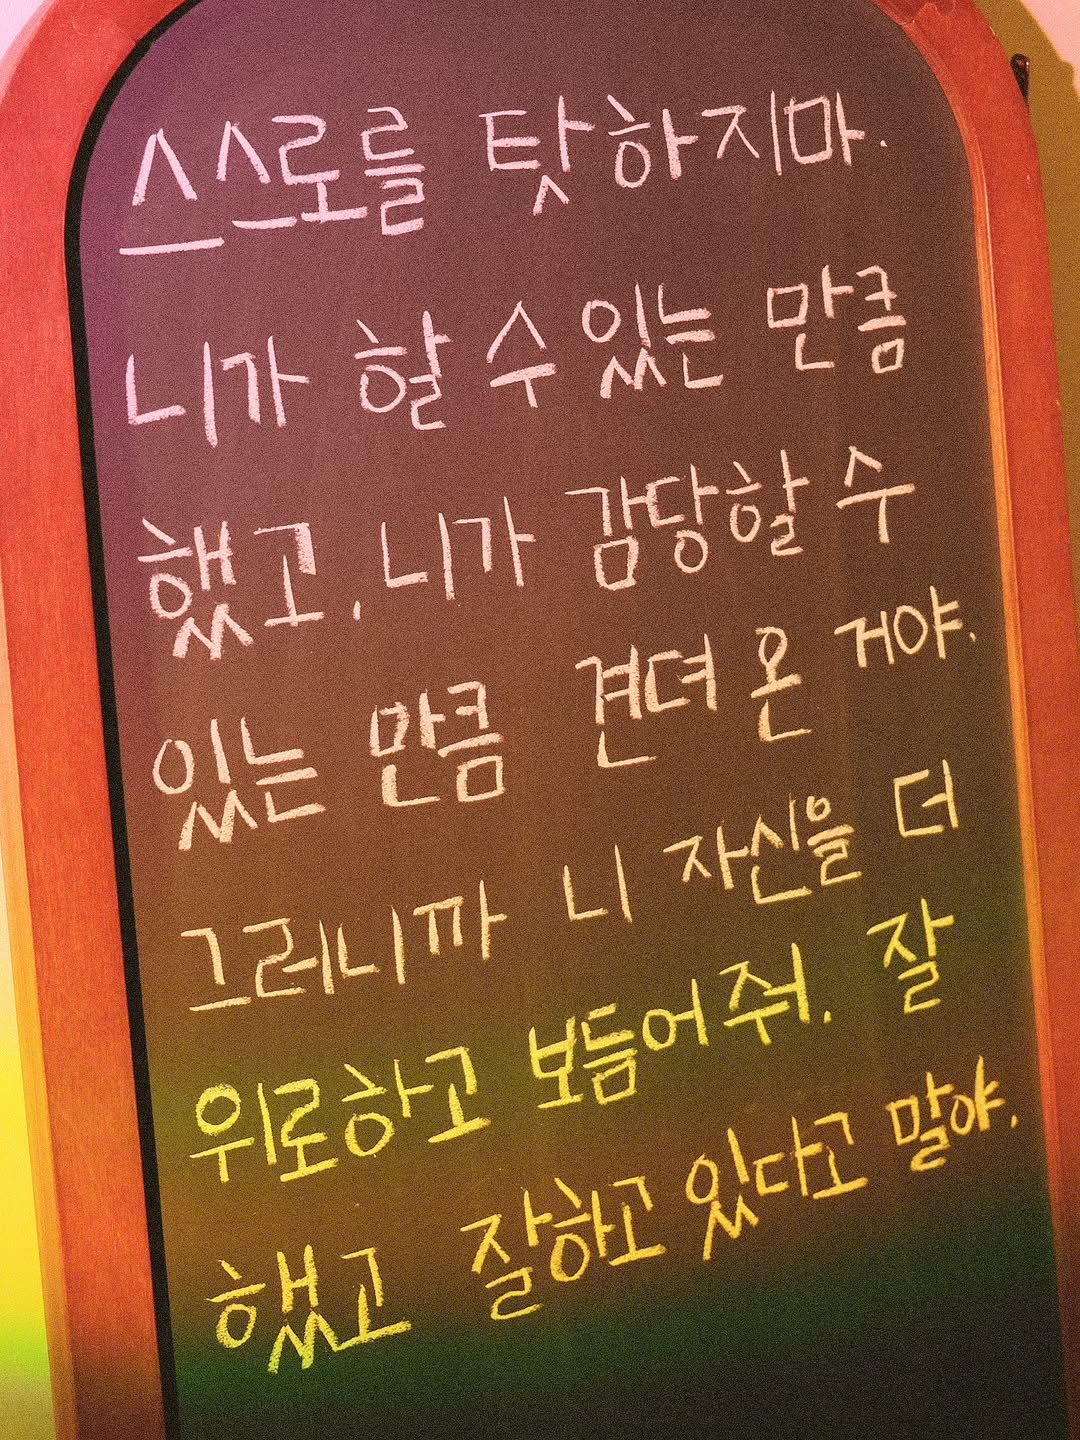 스스로를 탓하지마.
니가 할 수 있는 만큼
했고, 니가 감당할 수
있는 만큼 견뎌 온 거야.
그러니까 니 자신을 더
위로하고 보듬어줘. 잘
했고 잘하고 있다고 말야.